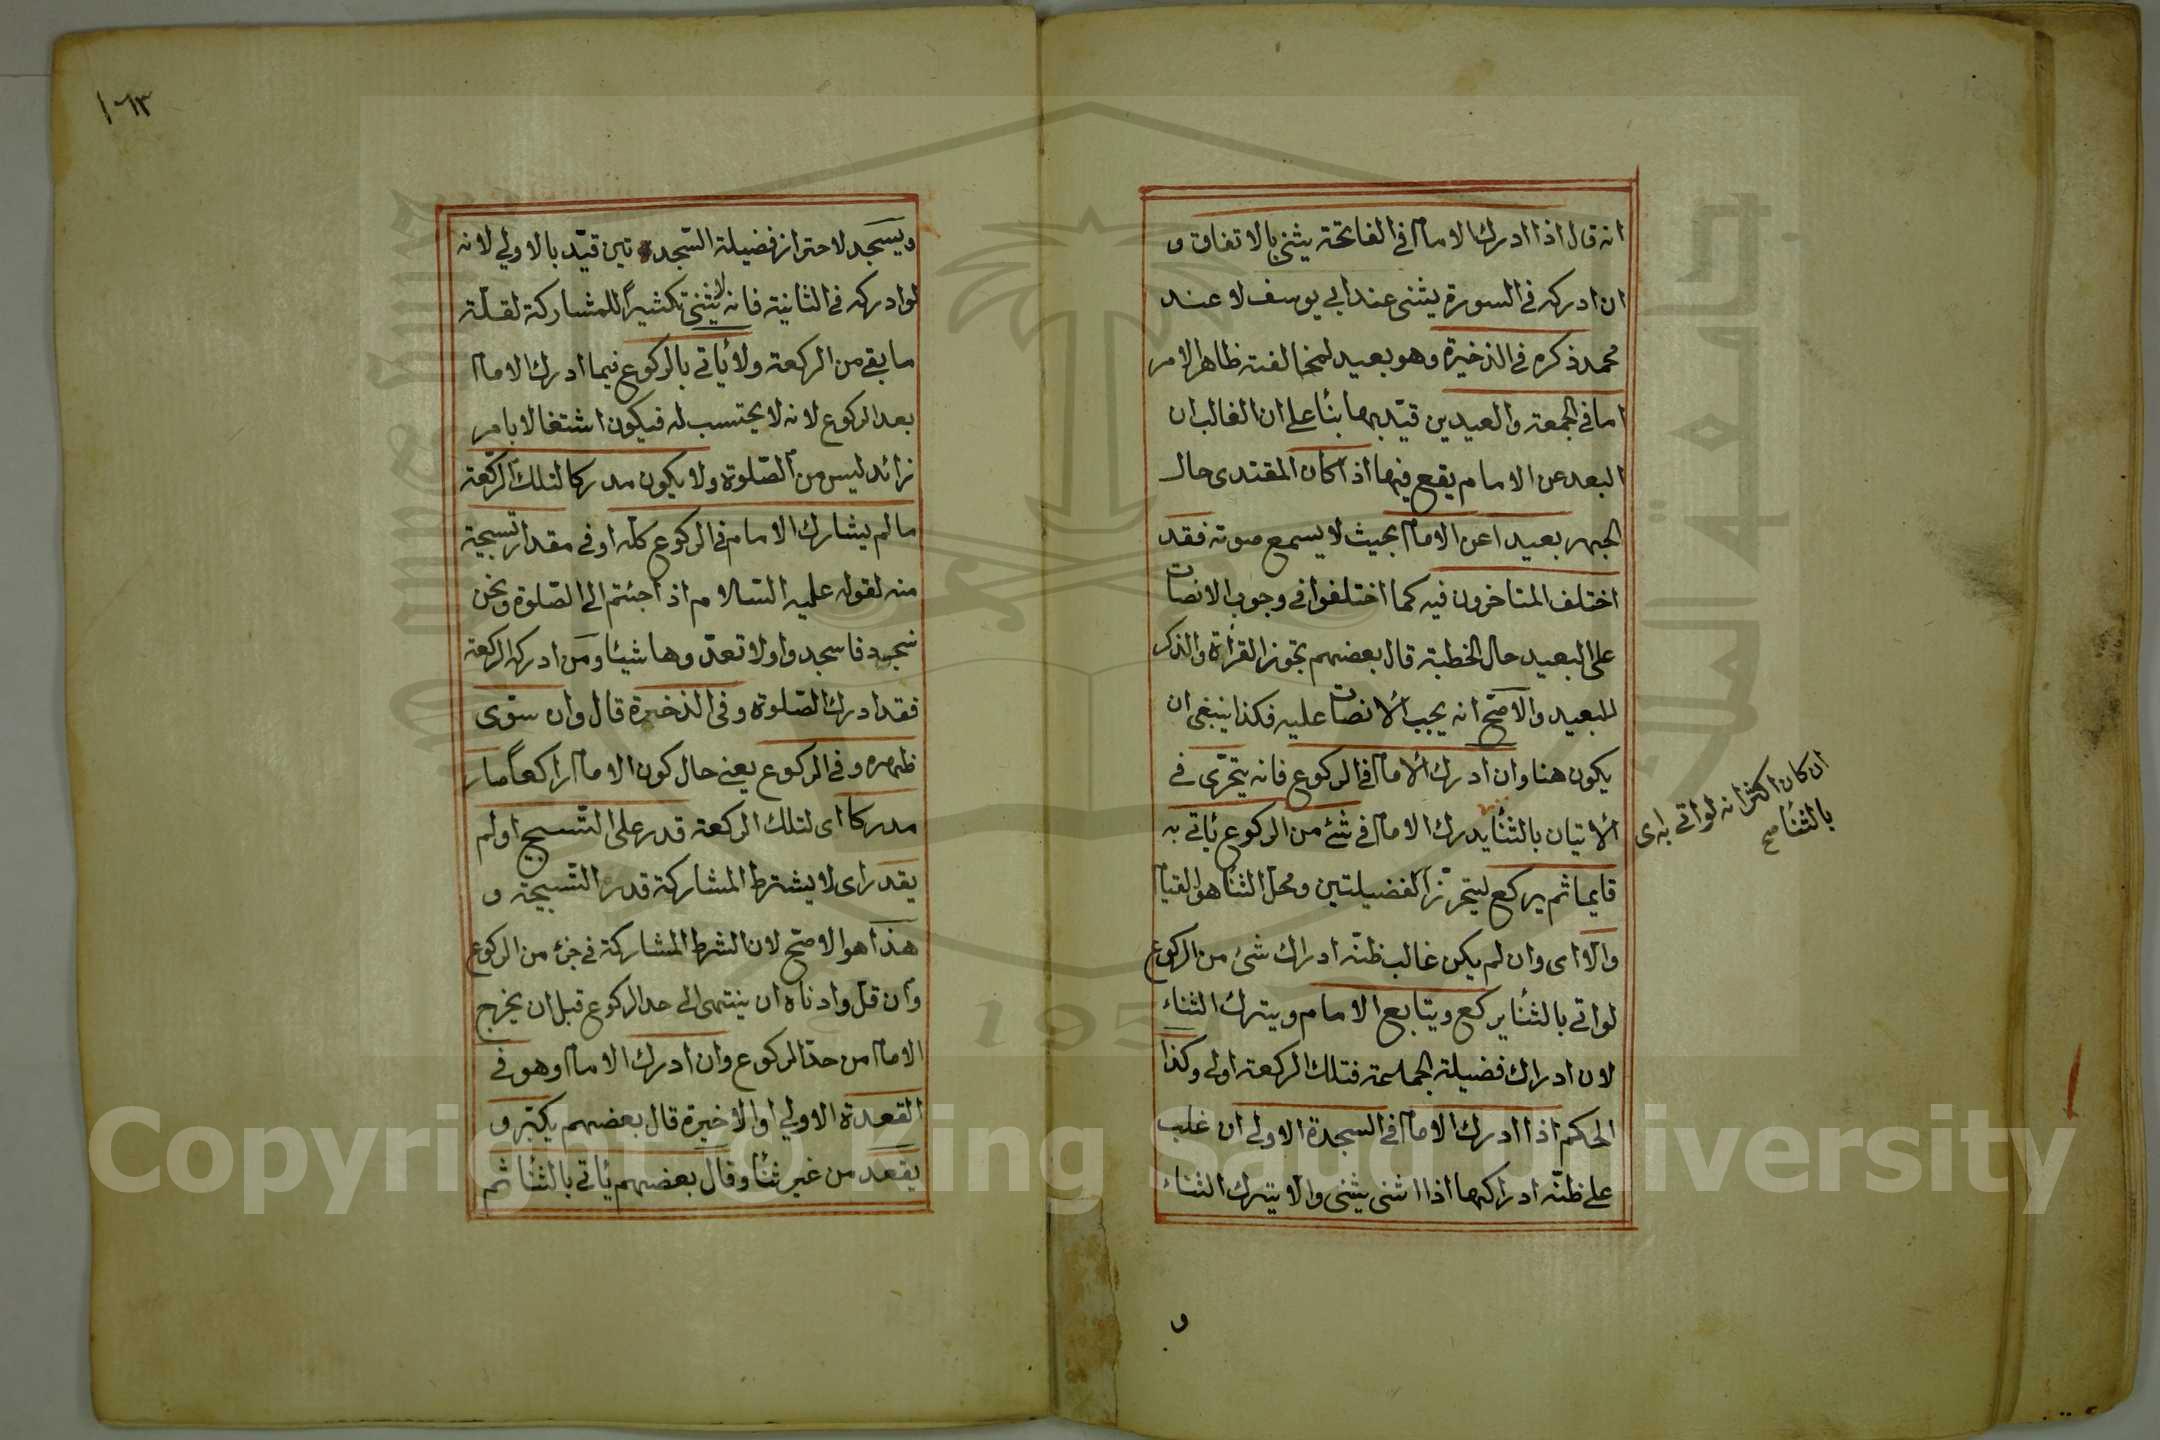 انه قال اذا ادرك الامام في الفاتحة يثني بالاتفاق و
ان ادركه في السورة يثنى عند ابي يوسف لا عند
محمد ذكره في الذخيرة وهو بعيد لمخالفته ظاهر الامر
اما في الجمعة والعيدين قيّد بهما بنأ على ان الغالب ان
البعد عن الامام يقع فيهما اذا كان المقتدى حال
الجهر بعيدا عن الامام بحيث لا يسمع صوته فقد
اختلف المتاخرون فيه كما اختلفوا في وجوب الانصات
على البعيد حال الخطبة قال بعضهم تجوز القرأة والذكر
للبعيد والاصحّ انه يجب الانصات عليه فكذا ينبغى ان
يكون هنا وان ادرك الامام في الركوع فانه يتحرّى في
الاتيان بالثنأ يدرك الامام في شئ من الركوع يأتي به
ان كان اكثر انه لو اتى به اى
بالثنأ صح
قايما ثم يركع ليتحرّز الفضيلتين ومحلّ الثنا هو القيام
والّا اى وان لم يكن غالب ظنّه ادراك شئ من الركوع
لو اتى بالثنأ يركع ويتابع الامام ويترك الثناء
لان ادراك فضيلة الجماعة فتلك الركعة اولى وكذا
الحكم اذا ادرك الامام في السجدة الاولى ان غلب
على ظنّه ادراكها اذا اثنى يثنى والا يترك الثناء
و
١٦٣
ويسجد لاحتراز فضيلة السّجدتين قيّد بالاولي لانه
لو ادركه في الثانية فانه لا يثنى تكثيراً للمشاركة لقلّة
ما بقي من الركعة ولا يأتي بالركوع فيما ادرك الامام
بعد الركوع لانه لا يحتسب له فيكون اشتغالا بامر
زائد ليس من الصّلوة ولا يكون مدركا لتلك الركعة
ما لم يشارك الامام في الركوع كلّه او في مقدار تسبيحة
منه لقوله عليه السّلام اذا جئتم الى الصّلوة ونحن
سجود فاسجدوا ولا تعدّوها شيئا ومن ادرك الركعة
فقد ادرك الصّلوة وفي الذخيرة قال وان سوّى
ظهره في الركوع يعني حال كون الامام راكعاً صار
مدركا اى لتلك الركعة قدر على التّسبيح او لم
يقدر اى لا يشترط المشاركة قدر التّسبيحة و
هذا هو الاصحّ لان الشرط المشاركة في جزء من الركوع
وان قلّ وادناه ان ينتهى الى حد الركوع قبل ان يخرج
الامام من حدّ الركوع وان ادرك الامام وهو في
القعدة الاولي او الاخيرة قال بعضهم يكبّر و
يقعد من غير ثنأ وقال بعضهم يأتي بالثنأ ثم
Copyright © King Saud University